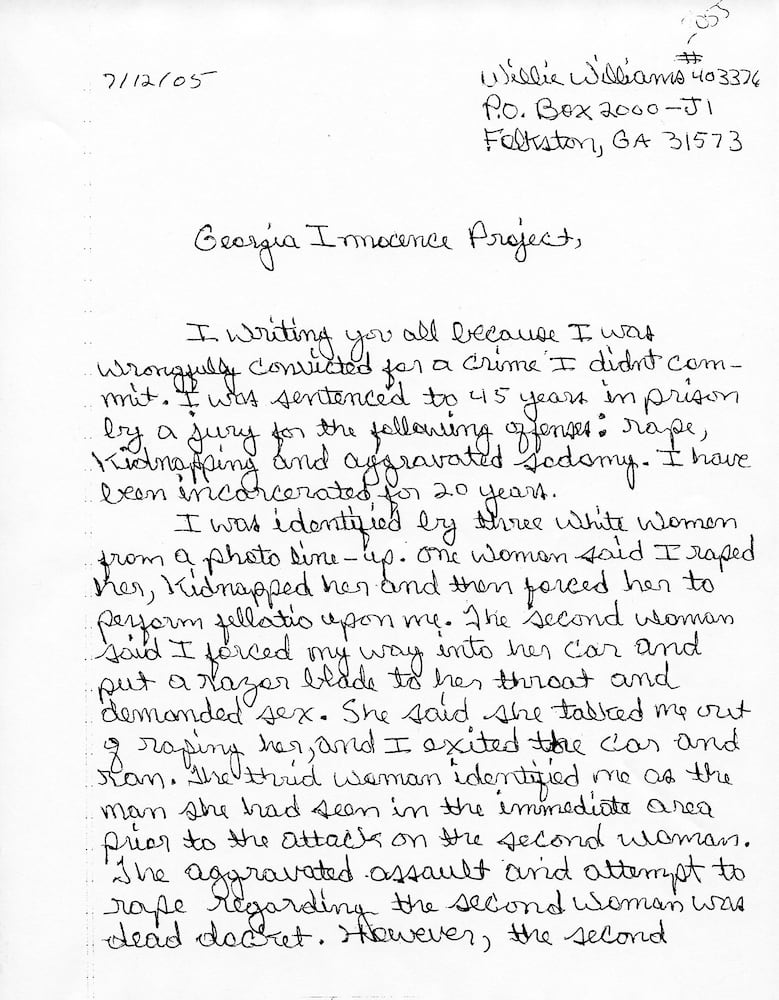 7/12/05
Willie Williams #403376
P.O. Box 2000-J1
Folkston, GA 31573
Georgia Innocence Project,
I writing you all because I was
wrongfully convicted for a crime I didnt com-
mit. I was sentenced to 45 years in prison
by a jury for the following offenses: rape,
Kidnapping and aggravated sodomy. I have
been incarcerated for 20 years.
I was identified by three white women
from a photo line-up. One woman said I raped
her, Kidnapped her and then forced her to
perform fellatio upon me. The second woman
said I forced my way into her car and
put a razor blade to her throat and
demanded sex. She said she talked me out
of raping her, and I exited the car and
ran. The thrid woman identified me as the
man she had seen in the immediate area
prior to the attack on the second woman.
The aggravated assault and attempt to
rape regarding the second woman was
dead docket. However, the second